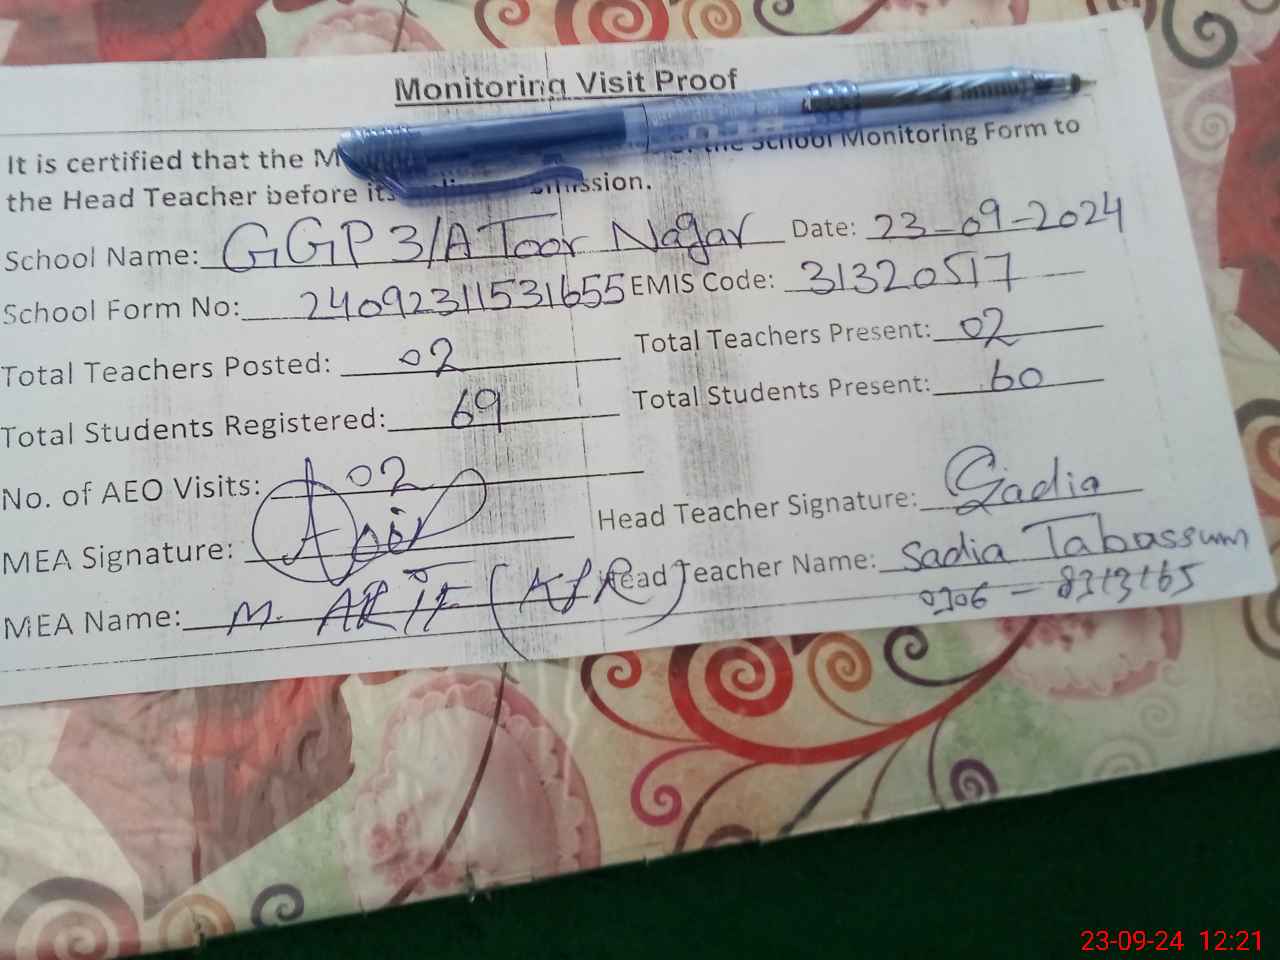 Monitoring Visit Proof
It is certified that the the School Monitoring Form to
the Head Teacher before its
School Name: GGP 3/A Toor Nagar Date: 23-09-2024
School Form No: 24092311531655 EMIS Code: 31320517
Total Teachers Posted: 02 Total Teachers Present: 02
Total Students Registered: 69 Total Students Present: 60
No. of AEO Visits: 02
MEA Signature: Head Teacher Signature: Sadia
MEA Name: M. ARIF (KLR) Head Teacher Name: Sadia Tabassum
0306 - 8313165
23-09-24 12:21